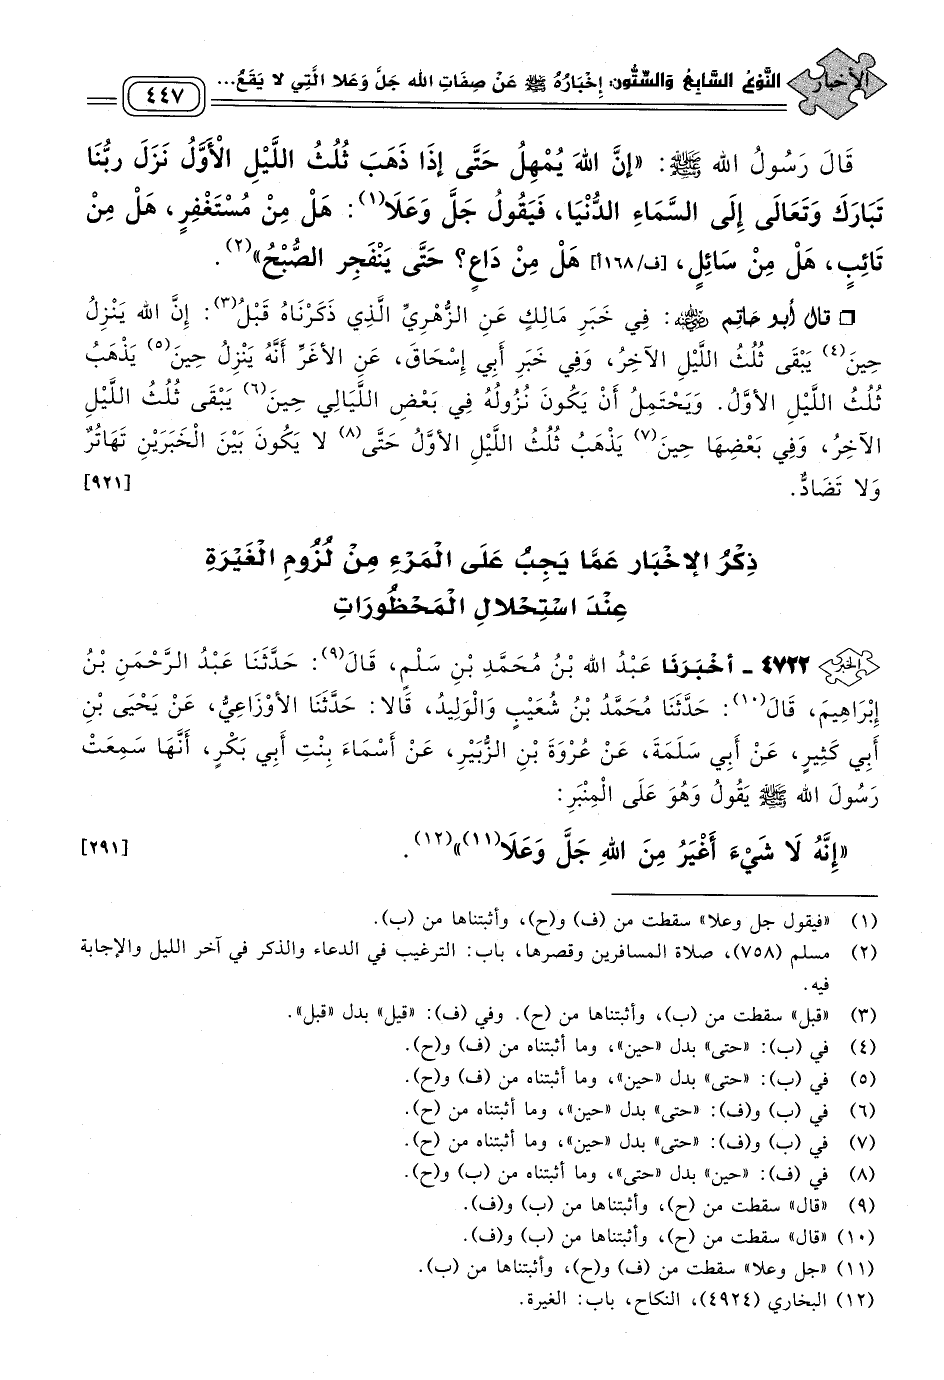 الأخبار
النَّوْعُ السَّابِعُ وَالسِّتُّونَ: إِخْبَارُهُ ﷺ عَنْ صِفَاتِ اللهِ جَلَّ وَعَلا الَّتِي لا يَقَعُ...
٤٤٧
قَالَ رَسُولُ اللهِ ﷺ: «إِنَّ اللهَ يُمْهِلُ حَتَّى إِذَا ذَهَبَ ثُلُثُ اللَّيْلِ الْأَوَّلُ نَزَلَ رَبُّنَا
تَبَارَكَ وَتَعَالَى إِلَى السَّمَاءِ الدُّنْيَا، فَيَقُولُ جَلَّ وَعَلَا(١): هَلْ مِنْ مُسْتَغْفِرٍ، هَلْ مِنْ
تَائِبٍ، هَلْ مِنْ سَائِلٍ، [ف/١٦٨أ] هَلْ مِنْ دَاعٍ؟ حَتَّى يَنْفَجِرَ الصُّبْحُ»(٢).
□ قال أبو حاتم ﵁: فِي خَبَرِ مَالِكٍ عَنِ الزُّهْرِيِّ الَّذِي ذَكَرْنَاهُ قَبْلُ(٣): إِنَّ اللهَ يَنْزِلُ
حِينَ(٤) يَبْقَى ثُلُثُ اللَّيْلِ الآخِرُ، وَفِي خَبَرِ أَبِي إِسْحَاقَ، عَنِ الأَغَرِّ أَنَّهُ يَنْزِلُ حِينَ(٥) يَذْهَبُ
ثُلُثُ اللَّيْلِ الأَوَّلُ. وَيَحْتَمِلُ أَنْ يَكُونَ نُزُولُهُ فِي بَعْضِ اللَّيَالِي حِينَ(٦) يَبْقَى ثُلُثُ اللَّيْلِ
الآخِرُ، وَفِي بَعْضِهَا حِينَ(٧) يَذْهَبُ ثُلُثُ اللَّيْلِ الأَوَّلُ حَتَّى(٨) لا يَكُونَ بَيْنَ الْخَبَرَيْنِ تَهَاتُرٌ
وَلا تَضَادٌّ. [٩٢١]
ذِكْرُ الإِخْبَارِ عَمَّا يَجِبُ عَلَى الْمَرْءِ مِنْ لُزُومِ الْغَيْرَةِ
عِنْدَ اسْتِحْلالِ الْمَحْظُورَاتِ
٤٧٢٢ ـ أَخْبَرَنَا عَبْدُ اللهِ بْنُ مُحَمَّدِ بْنِ سَلْمٍ، قَالَ(٩): حَدَّثَنَا عَبْدُ الرَّحْمَنِ بْنُ
إِبْرَاهِيمَ، قَالَ(١٠): حَدَّثَنَا مُحَمَّدُ بْنُ شُعَيْبٍ وَالْوَلِيدُ، قَالا: حَدَّثَنَا الأَوْزَاعِيُّ، عَنْ يَحْيَى بْنِ
أَبِي كَثِيرٍ، عَنْ أَبِي سَلَمَةَ، عَنْ عُرْوَةَ بْنِ الزُّبَيْرِ، عَنْ أَسْمَاءَ بِنْتِ أَبِي بَكْرٍ، أَنَّهَا سَمِعَتْ
رَسُولَ اللهِ ﷺ يَقُولُ وَهُوَ عَلَى الْمِنْبَرِ:
«إِنَّهُ لَا شَيْءَ أَغْيَرُ مِنَ اللهِ جَلَّ وَعَلَا(١١)»(١٢). [٢٩١]
(١) «فيقول جل وعلا» سقطت من (ف) و(ح)، وأثبتناها من (ب).
(٢) مسلم (٧٥٨)، صلاة المسافرين وقصرها، باب: الترغيب في الدعاء والذكر في آخر الليل والإجابة
فيه.
(٣) «قبل» سقطت من (ب)، وأثبتناها من (ح). وفي (ف): «قيل» بدل «قبل».
(٤) في (ب): «حتى» بدل «حين»، وما أثبتناه من (ف) و(ح).
(٥) في (ب): «حتى» بدل «حين»، وما أثبتناه من (ف) و(ح).
(٦) في (ب) و(ف): «حتى» بدل «حين»، وما أثبتناه من (ح).
(٧) في (ب) و(ف): «حتى» بدل «حين»، وما أثبتناه من (ح).
(٨) في (ف): «حين» بدل «حتى»، وما أثبتناه من (ب) و(ح).
(٩) «قال» سقطت من (ح)، وأثبتناها من (ب) و(ف).
(١٠) «قال» سقطت من (ح)، وأثبتناها من (ب) و(ف).
(١١) «جل وعلا» سقطت من (ف) و(ح)، وأثبتناها من (ب).
(١٢) البخاري (٤٩٢٤)، النكاح، باب: الغيرة.